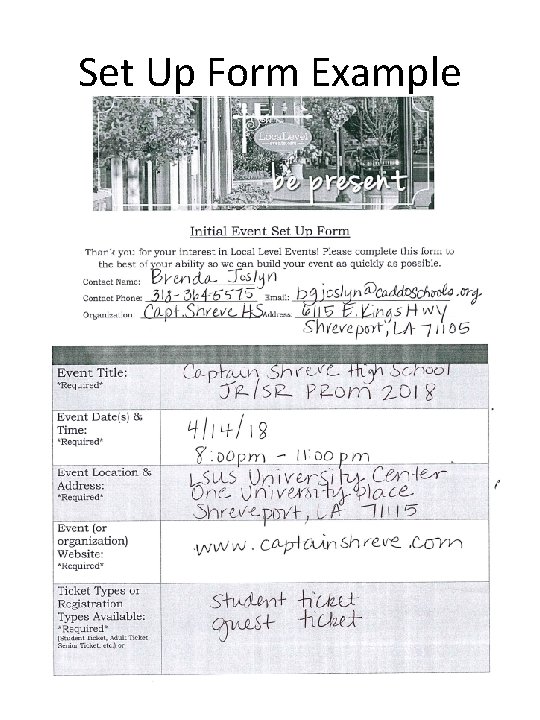 Set Up Form Example
LocaLevel
be present
Initial Event Set Up Form
Thank you for your interest in Local Level Events! Please complete this form to
the best of your ability so we can build your event as quickly as possible.
Contact Name: Brenda Joslyn
Contact Phone: 318-364-5575 Email: bgjoslyn@caddoschools.org
Organization: Capt. Shreve HS Address: 6115 E. Kings Hwy
Shreveport, LA 71105
Event Title: Captain Shreve High School
*Required* JR/SR PROM 2018
Event Date(s) &
Time: 4/14/18
*Required* 8:00pm - 11:00pm
Event Location & LSUS University Center
Address: One University Place
*Required* Shreveport, LA 71115
Event (or
organization) www.captainshreve.com
Website:
*Required*
Ticket Types or
Registration student ticket
Types Available: guest ticket
*Required*
(Student Ticket, Adult Ticket,
Senior Ticket, etc.) or